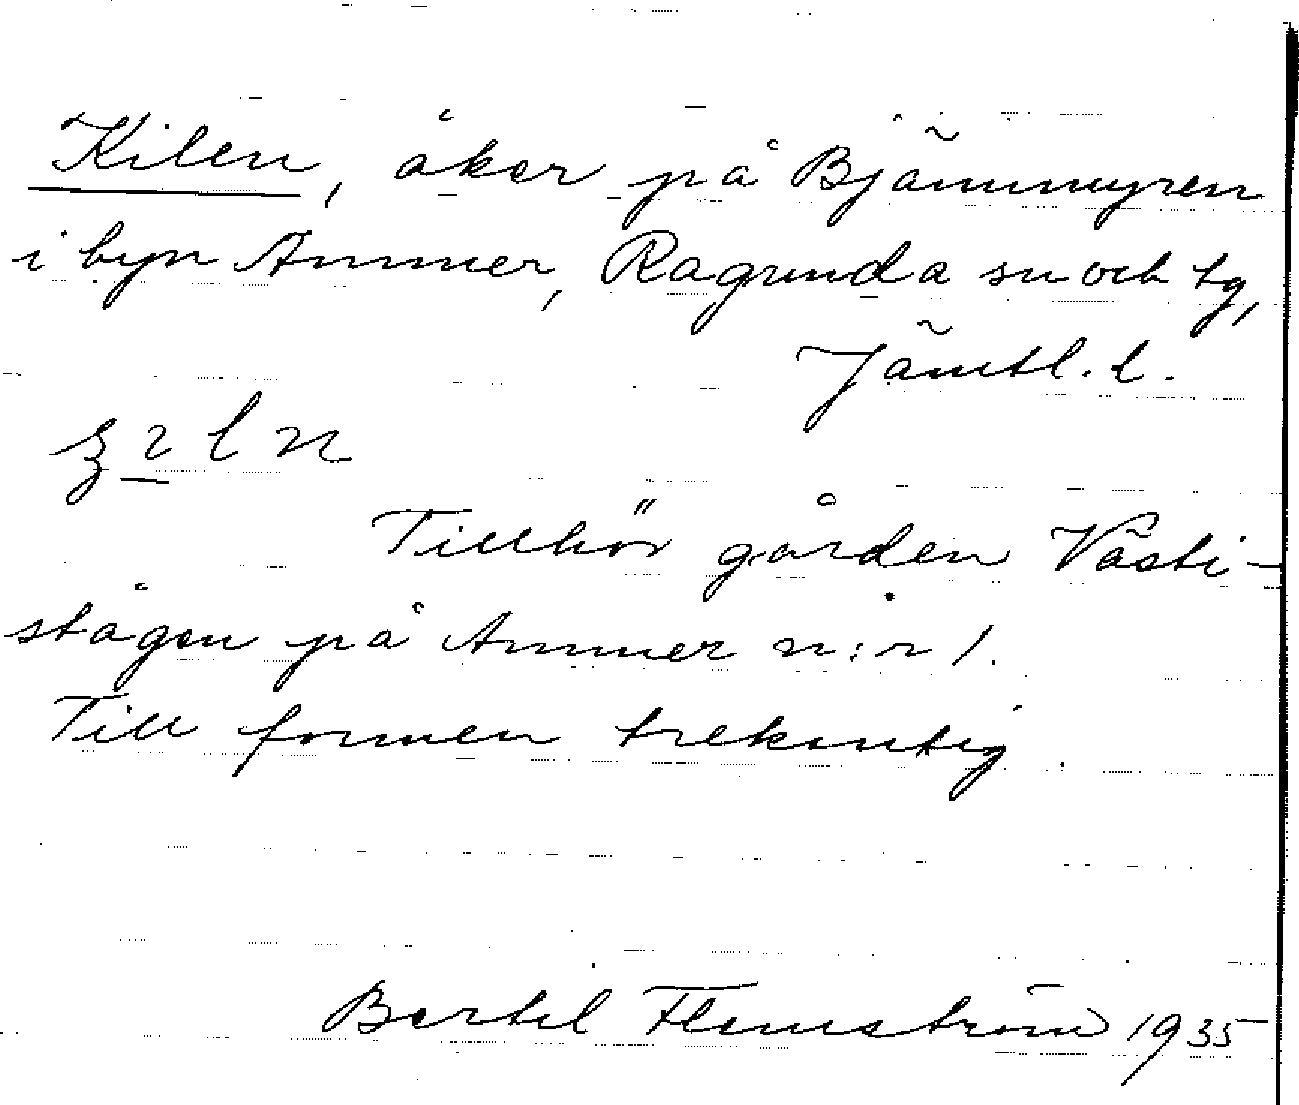 Kilen, åker på Bjämmyren
i byn Ammer, Ragunda sn och tg,
Jämtl. l.
Tillhör gården Västi-
stågen på Ammer n:r 1.
Till formen trekantig.
Bertel Flemström 1935